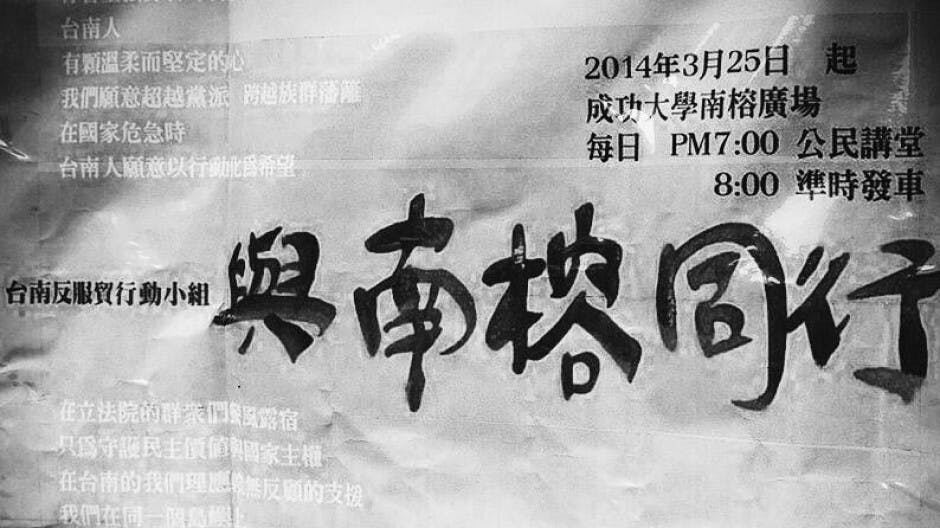 台南人
有顆溫柔而堅定的心
我們願意超越黨派 跨越族群藩籬
在國家危急時
台南人願意以行動化為希望
2014年3月25日 起
成功大學南榕廣場
每日 PM7:00 公民講堂
8:00 準時發車
台南反服貿行動小組
與南榕同行
在立法院的群眾們餐風露宿
只為守護民主價值與國家主權
在台南的我們理應義無反顧的支援
我們在同一個島嶼上